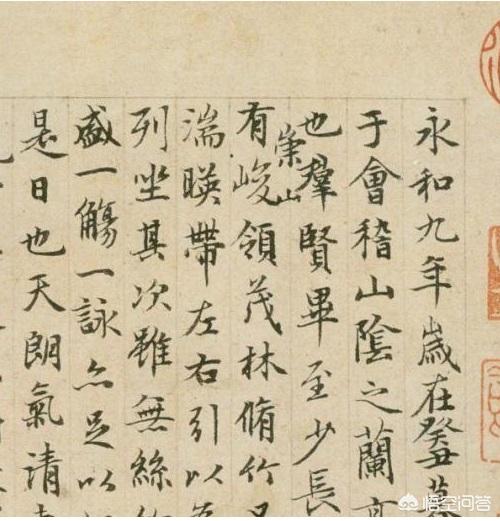 永和九年歲在癸丑
于會稽山陰之蘭亭
也羣賢畢至少長
有崇山峻領茂林脩竹
湍暎帶左右引以為
列坐其次雖無絲
盛一觴一詠亦足以
是日也天朗氣清
悟空问答